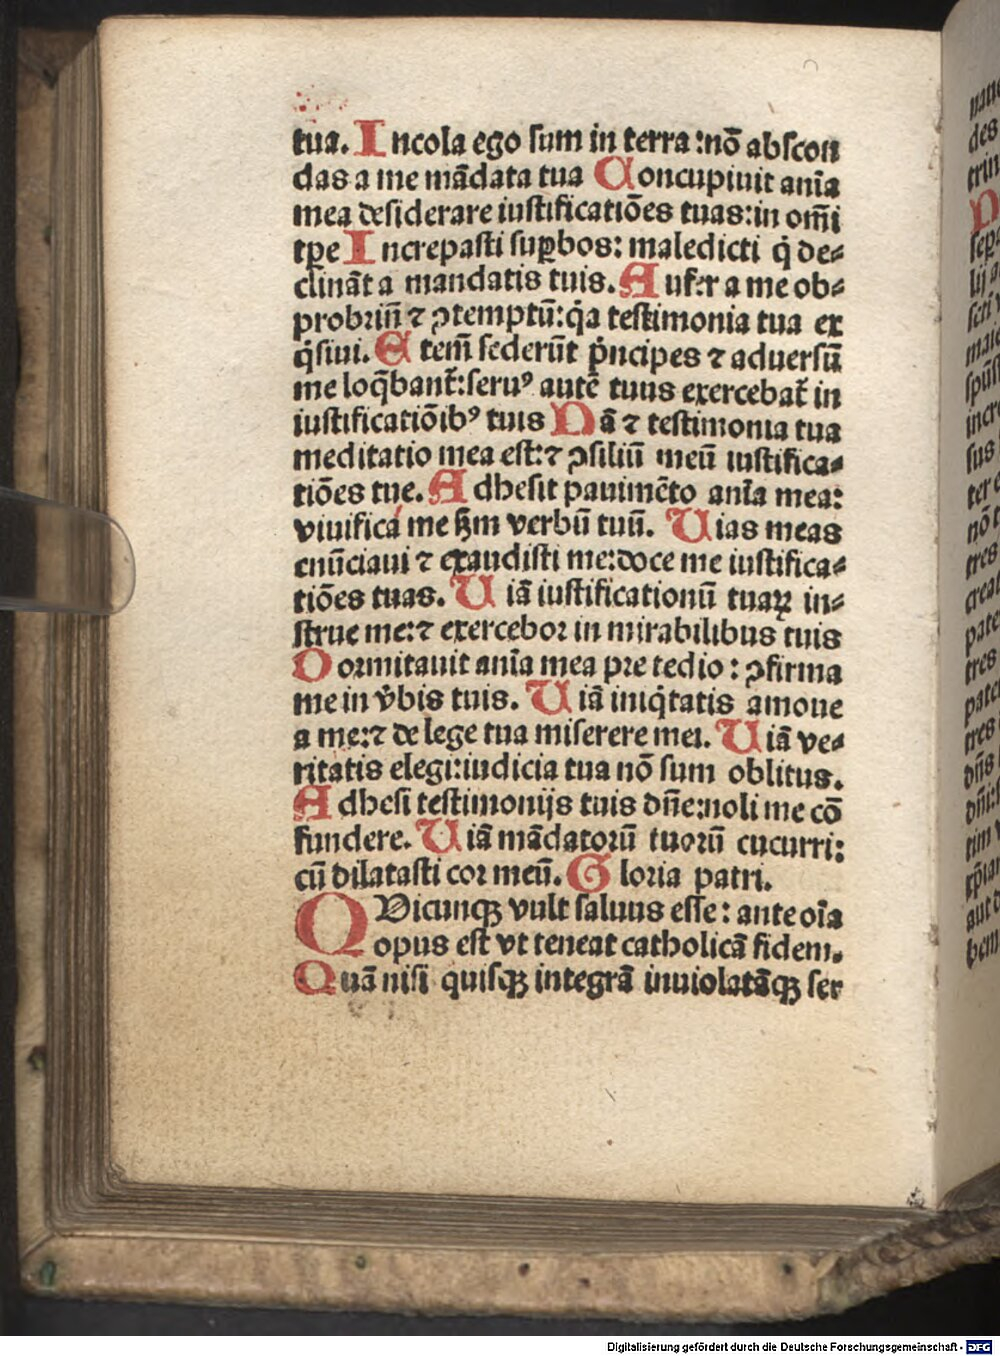 tua. Incola ego sum in terra:nō abscon
das a me mādata tua Concupiuit anīa
mea desiderare iustificatiōes tuas:in om̄i
tꝑe Increpasti suꝑbos: maledicti q̇ de⸗
clināt a mandatis tuis. Aufer a me ob⸗
probriū ⁊ ꝯtemptū:q̇a testimonia tua ex
q̇siui. Etem̄ sederūt pͥncipes ⁊ aduersū
me loq̄bant̄:seruꝰ autē tuus exercebat̄ in
iustificatiōibꝰ tuis Nā ⁊ testimonia tua
meditatio mea est:⁊ ꝯsiliū meū iustifica⸗
tiōes tue. Adhesit pauimēto anīa mea:
viuifica me ẜm verbū tuū. Uias meas
enūciaui ⁊ exaudisti me:doce me iustifica⸗
tiōes tuas. Uiā iustificationū tuaꝝ in⸗
strue me:⁊ exercebor in mirabilibus tuis
Dormitauit anīa mea pre tedio: ꝯfirma
me in v̓bis tuis. Uiā iniq̇tatis amoue
a me:⁊ de lege tua miserere mei. Uiā ve⸗
ritatis elegi:iudicia tua nō sum oblitus.
Adhesi testimonijs tuis dn̄e:noli me cō
fundere. Uiā mādatorū tuorū cucurri:
cū dilatasti cor meū. Gloria patri.
QVicunqꝫ vult saluus esse: ante oīa
opus est vt teneat catholicā fidem.
Quā nisi quisqꝫ integrā inuiolatāqꝫ ser
Digitalisierung gefördert durch die Deutsche Forschungsgemeinschaft - DFG